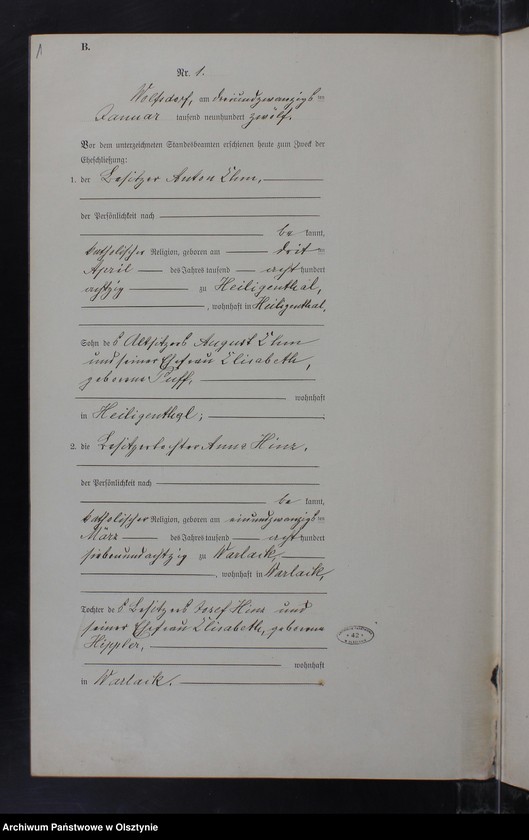 1
B.
Nr. 1.
Wolfsdorf, am dreiundzwanzigsten
Januar tausend neunhundert zwölf.
Vor dem unterzeichneten Standesbeamten erschienen heute zum Zweck der
Eheschließung:
1. der Besitzer Anton
der Persönlichkeit nach
be kannt,
katholischer Religion, geboren am dritten
April des Jahres tausend acht hundert
achtzig zu Heiligenthal,
, wohnhaft in Heiligenthal,
Sohn des Altsitzers August
und seiner Ehefrau Elisabeth,
geborene Puff,
wohnhaft
in Heiligenthal;
2. die Besitzertochter Anna Hinz,
der Persönlichkeit nach
be kannt,
katholischer Religion, geboren am einundzwanzigsten
März des Jahres tausend acht hundert
siebenundachtzig zu Warlack,
, wohnhaft in Warlack,
Tochter des Besitzers Josef Hinz und
seiner Ehefrau Elisabeth, geborene
Hippler,
wohnhaft
in Warlack.
42
Archiwum Państwowe w Olsztynie